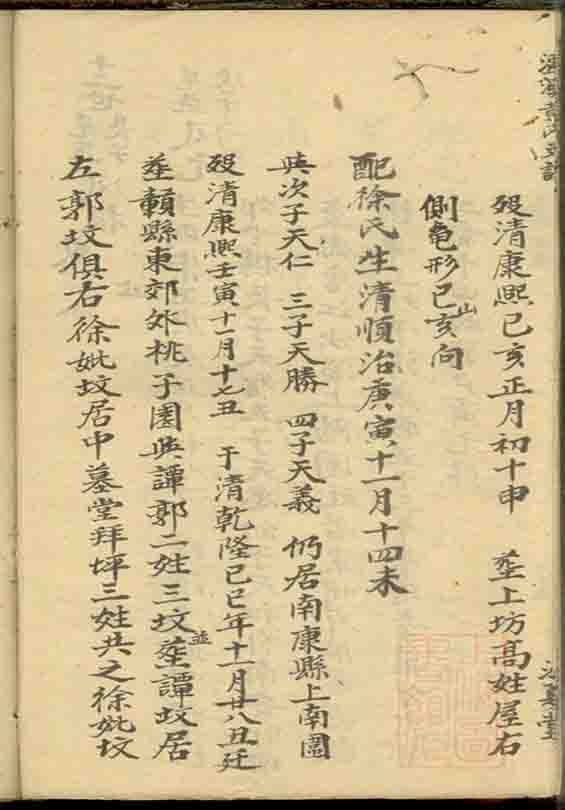 殁清康熙己亥正月初十申 塟上坊高姓屋右
側龟形巳山亥向
配徐氏生清順治庚寅十一月十四未
與次子天仁 三子天勝 四子天義 仍居南康縣上南圕
殁清康熙壬寅十一月十七丑 于清乾隆己巳年十一月廿八丑迁
塟贑縣東郊外桃子園與譚郭二姓三坟並塟譚坟居
左郭坟俱右徐妣坟居中墓堂拜坪三姓共之徐妣坟